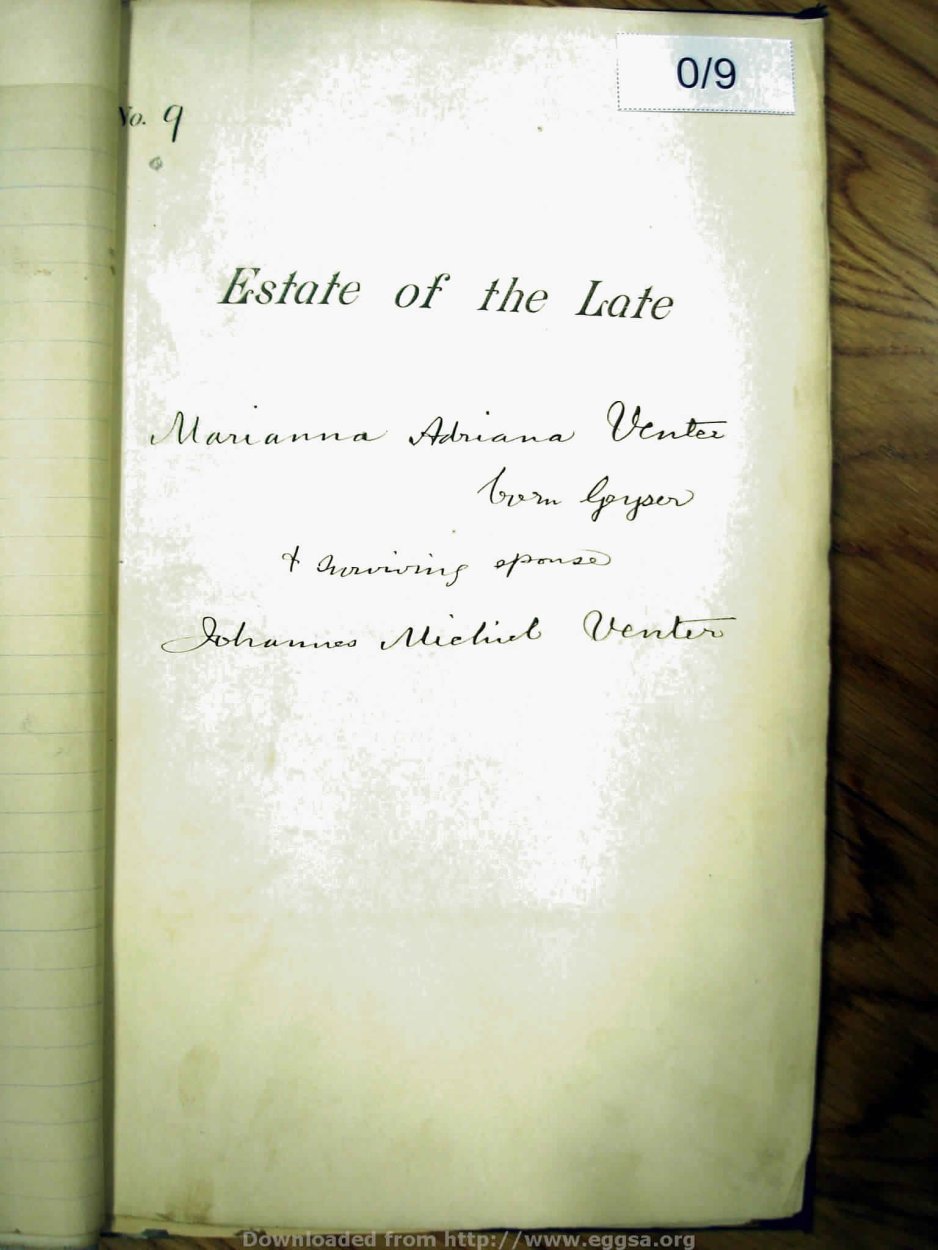 0/9
No. 9
Estate of the Late
Marianna Adriana Venter
born Geyser
& surviving spouse
Johannes Michiel Venter
Downloaded from http://www.eggsa.org